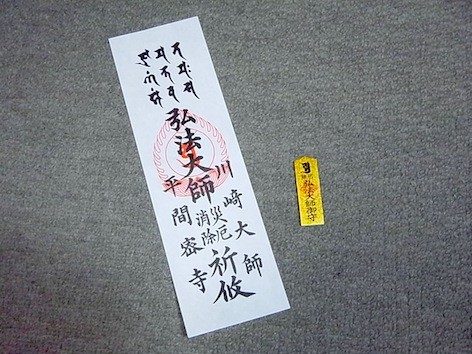 川崎大師
弘法大師
災厄
消除
祈攸
平間密寺
弘法大師御守